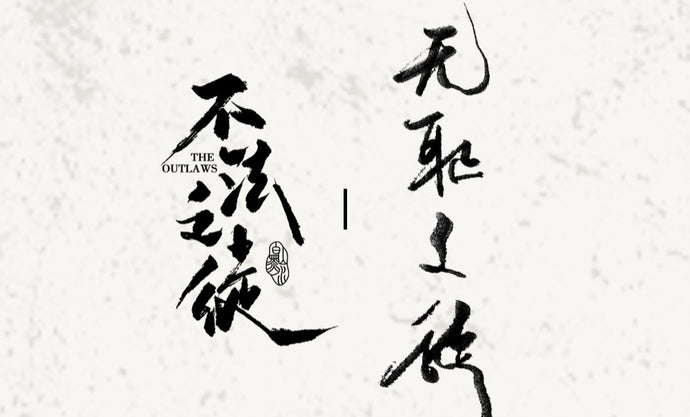 不法之徒
THE
OUTLAWS
无耻之